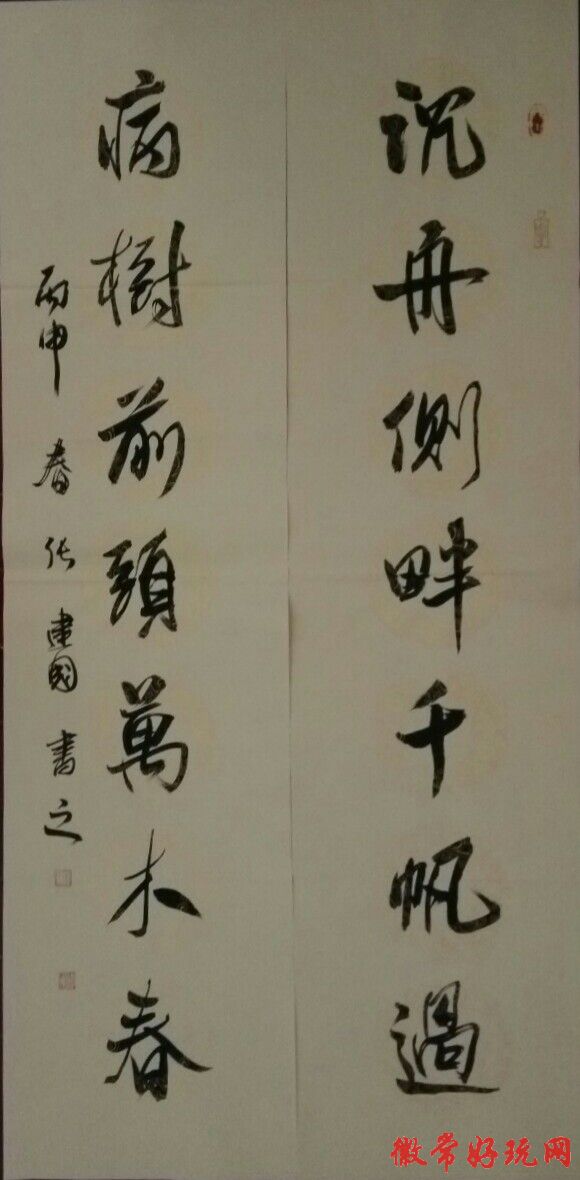 沉舟側畔千帆過
病樹前頭萬木春
丙申春张建国書之
徽常好玩网